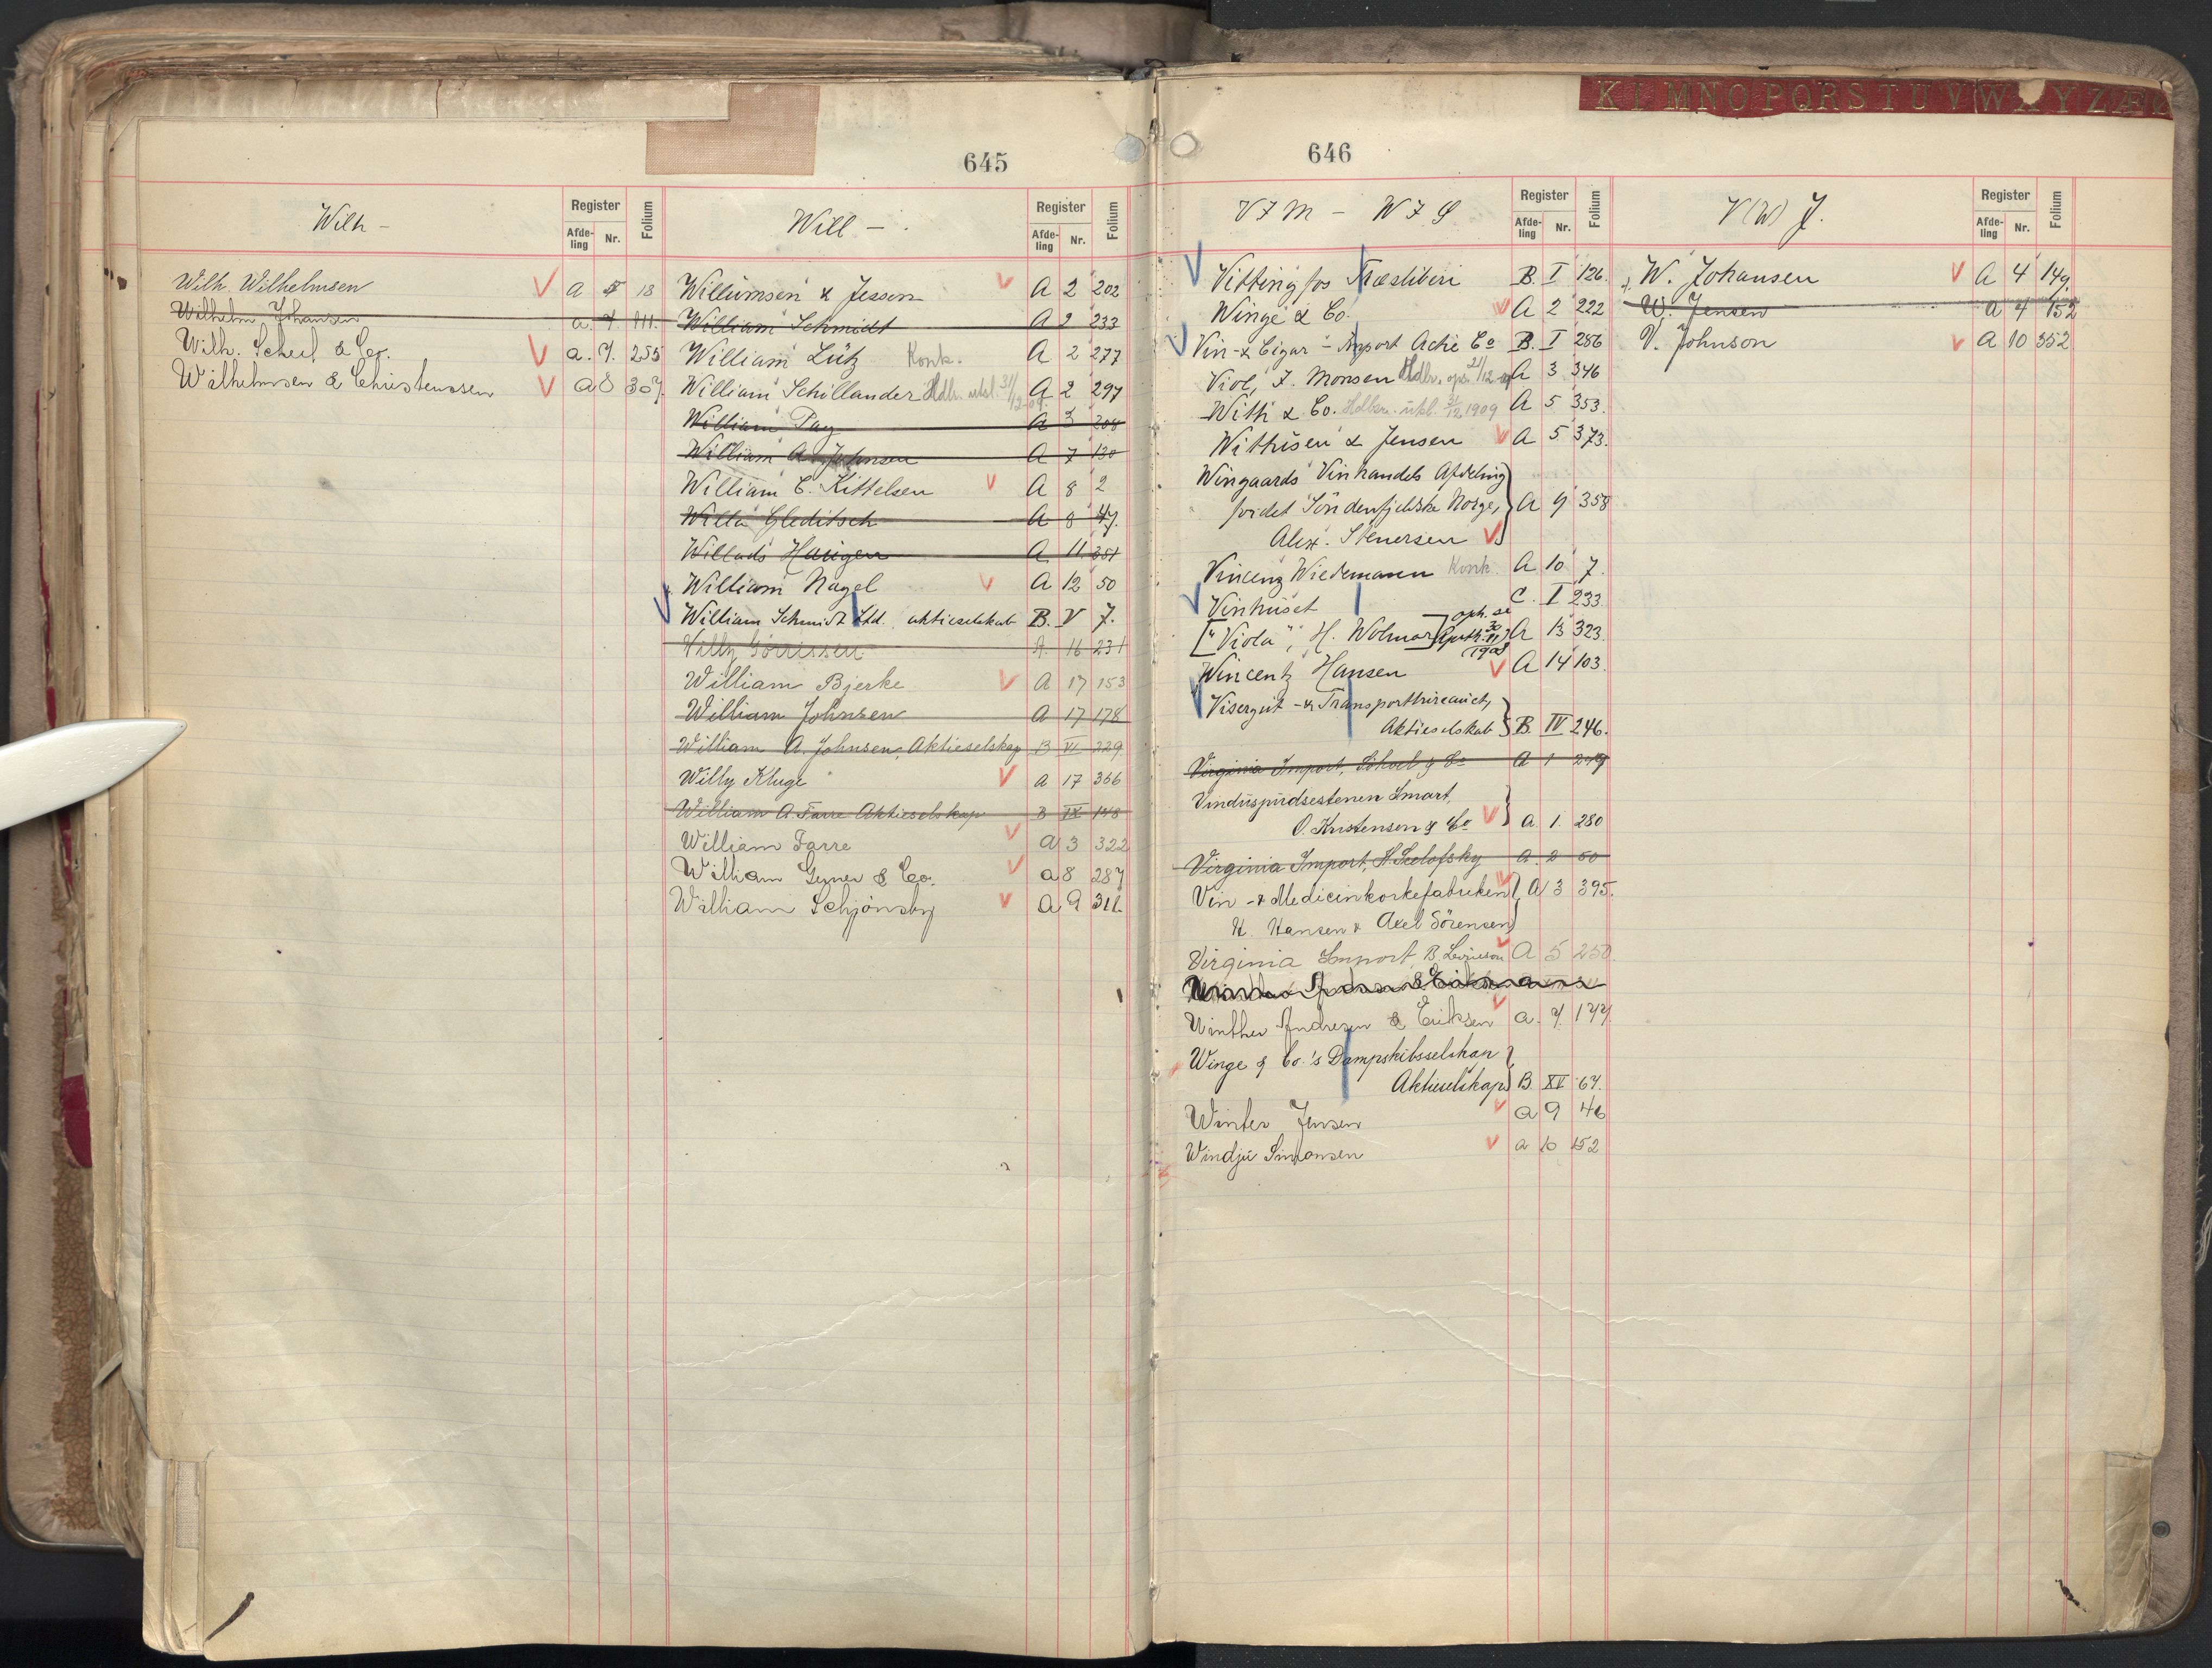 645
Wilh -
Register
Afde-ling Nr. Folium
Wilh. Wilhelmsen V a 18
Wilhelm Johansen a. 7. 111.
Wilh. Scheel & Co. V a. 7. 255
Wilhelmsen & Christenssen V a 8 307.
Will -
Register
Afde-ling Nr. Folium
Willumsen & Jessen V A 2 202
William Schmidt A 2 233
William Lütz Konk. A 2 277
William Schillander Hdln. utsl. 31/12-09. A 2 297
William Pay A 3 208
William A. Johnsen A 7 130
William C. Kittelsen V A 8 2
Willa Gleditsch A 8 47.
Willads Haugen A 11 351
William Nagel V A 12 50
William Schmidt Ltd. aktieselskab B. V 7.
Willy Görrissen A. 16 231
William Bjerke V A 17 153
William Johnsen A 17 178
William A. Johnsen, Aktieselskap B VI 229
Willy Kluge V A 17 366
William A. Farre Aktieselskap B IX 148
William Farre V A 3 322
William & Co. V a 8 287
William Schjönsby V A 9 311.
K L M N O P Q R S T U V W X Y Z Æ
646
Register
Afde-ling Nr. Folium
Vittingfos Træsliberi B. I 126.
Winge & Co. V A 2 222
Vin- & Cigar - Import Actie Co B. I 286
Viol, J. Monsen A 3 346
With & Co. 31/12 1909 A 5 353.
Withusen & Jensen V A 5 373.
Wingaards Vinhandels Afdeling
for det Söndenfjeldske Norge, A 9 358
Alex. Stenersen V
Vincenz Wiedemann Konk. A 10 7.
Vinhuset C. I 233.
["Viola", H. Wolmar] oph. se 1908 A 13 323.
Wincentz Hansen V A 14 103.
Visergut - & Transportbureauet,
Aktieselskab B. IV 246.
Virginia Import, & Co A 1 249
Vinduspudsestenen Smart,
O. Kristensen & Co V A. 1. 280
Virginia Import, A. 2 50
Vin - & Medicinkorkefabriken V A 3 395.
H. Hansen & Axel Sörensen
Virginia Import, B. Levinson V A 5 250.
Winther Andresen & Eriksen V a. 7. 177.
Winge & Co.'s Dampskibsselskap
Aktieselskap B. XV 67.
Winter Jensen V a 9 46
Windju Simonsen V a 10 152
V(W) J.
Register
Afde-ling Nr. Folium
W. Johansen V A 4 149.
W. Jensen A 4 152
V. Johnson V A 10 352